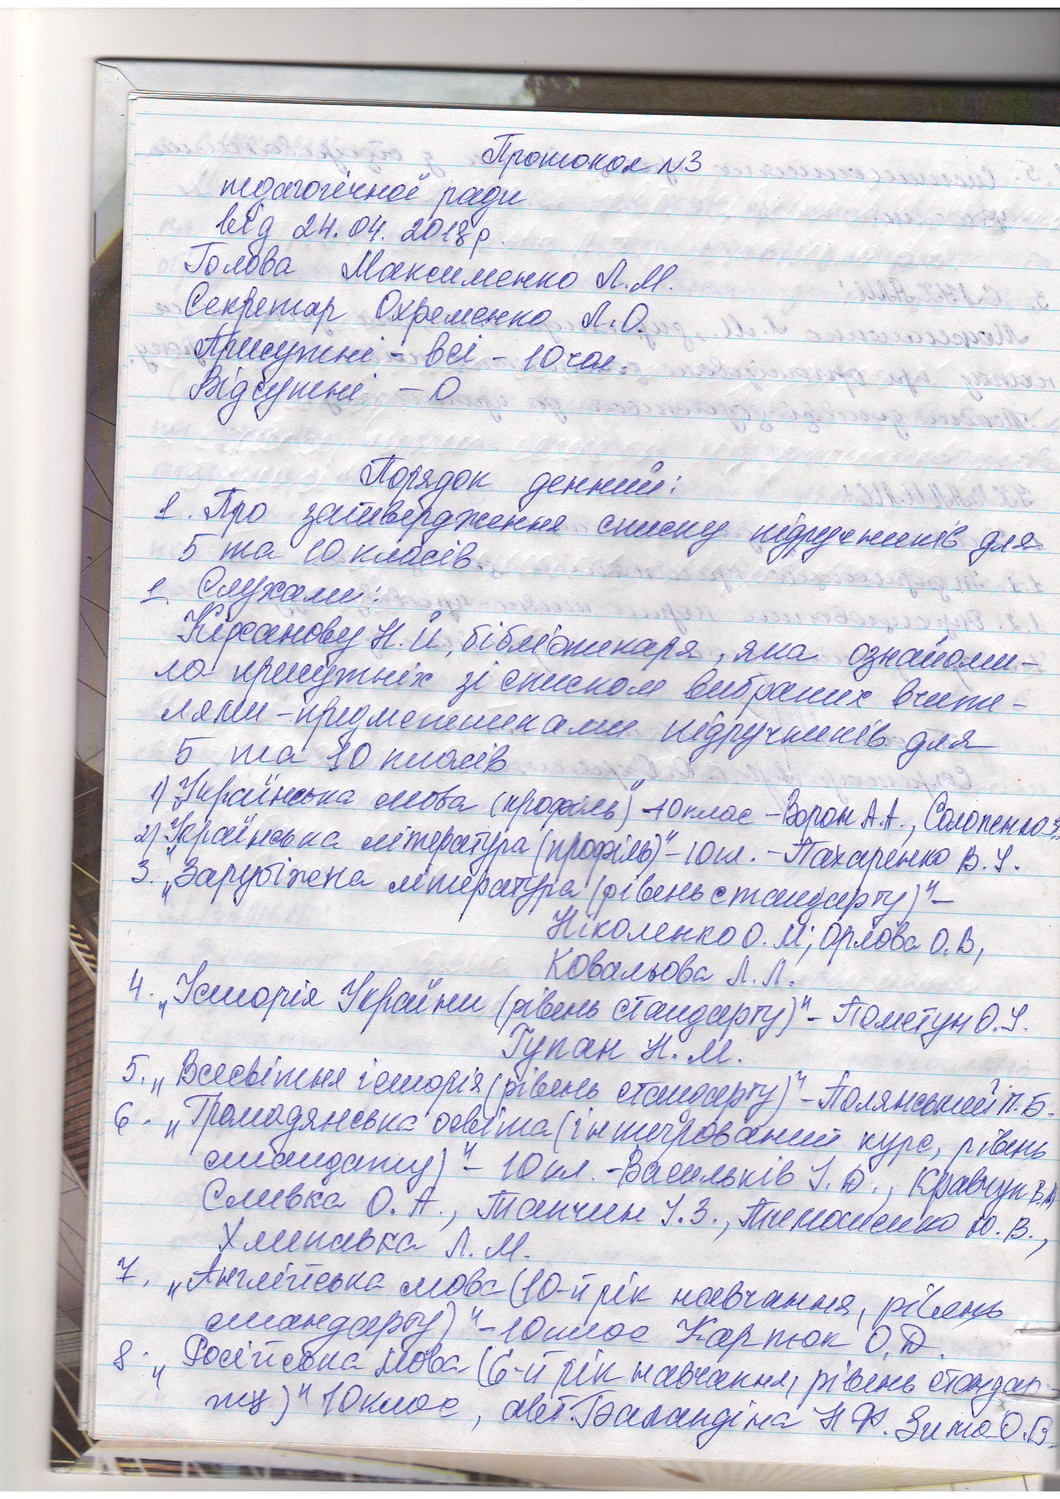 Протокол №3
педагогічної ради
від 24.04.2018р.
Голова Максименко Л.М.
Секретар Охременко Л.О.
Присутні - всі - 10 чол.
Відсутні - 0
Порядок денний:
1. Про затвердження списку підручників для
5 та 10 класів.
1. Слухали:
Кірсанову Н.Й, бібліотекаря, яка ознайоми-
ла присутніх зі списком вибраних вчите-
лями-предметниками підручників для
5 та 10 класів
1) „Українська мова (профіль)" - 10 клас - Ворон А.А., Солопенко
2) „Українська література (профіль)" - 10 кл. - Пахаренко В.І.
3. „Зарубіжна література (рівень стандарту)" -
Ніколенко О.М; Орлова О.В,
Ковальова Л.Л.
4. „Історія України (рівень стандарту)" - Пометун О.І.
Гупан Н.М.
5. „Всесвітня історія (рівень стандарту)" - Полянський П.Б.
6. „Громадянська освіта (інтегрований курс, рівень
стандарту)" - 10 кл. - Васильків І.Д., Кравчук В.М
Сливка О.А., Танчин І.З., Тимошенко Ю.В.,
Хлипавка Л.М.
7. „Англійська мова (10-й рік навчання, рівень
стандарту)" - 10 клас Карпюк О.Д.
8. „Російська мова (6-й рік навчання, рівень стандар-
ту)" 10 клас, авт. Баландіна Н.Ф. Зима О.В.